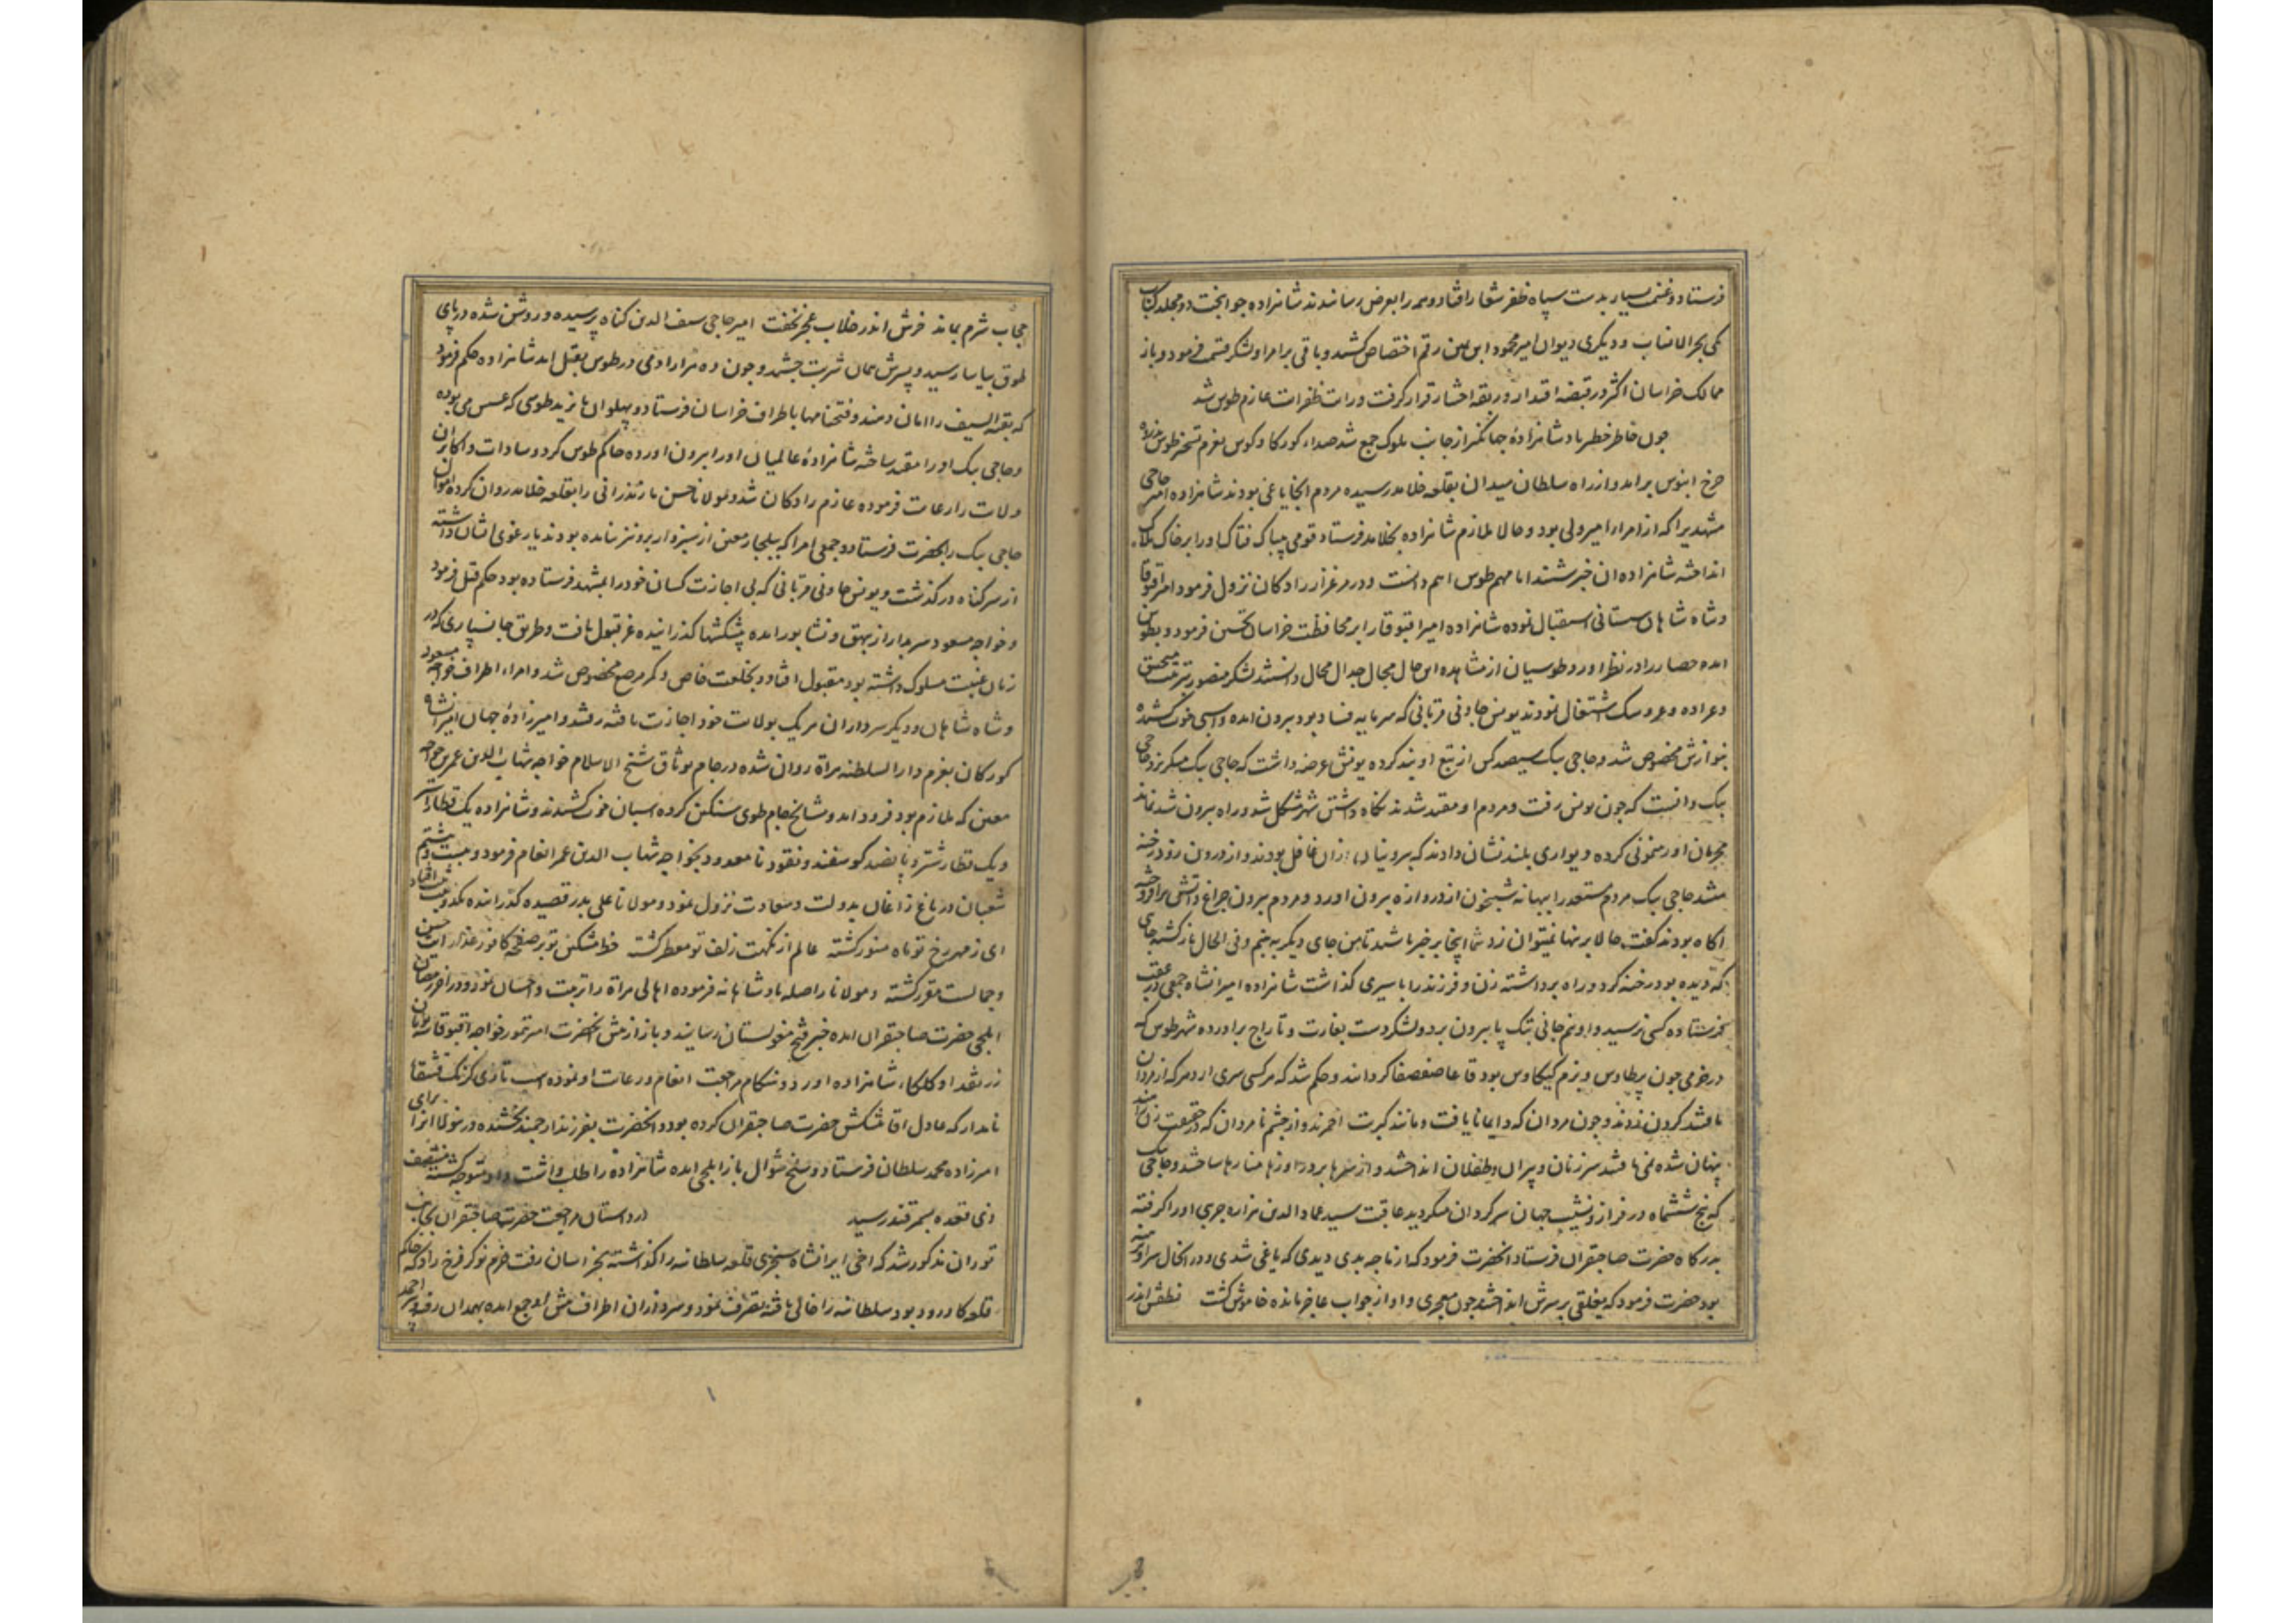 فرستاد و غنیمت بسیار بدست سپاه ظفر شعار افتاد و همه را بعرض رسانیدند شاهزاده جوانبخت دو مجلد کتاب
یکی بحر الانساب و دیگری دیوان امیر محمود ابن یمین رقم اختصاص کشید و باقی بر امرا و لشکر قسمت فرمود و باز
ممالک خراسان اکثر در قبضه اقتدار و ربقه اختیار قرار گرفت و رایت ظفر ایت عازم طوس شد
چون خاطر خطیر پادشاهزادۀ جهانگیر از جانب ملوک جمع شد صداء کورکا و کوس بعزم تسخیر طوس
چرخ ابنوس بر امد و از راه سلطان میدان بقلعه خلامد رسیده مردم انجا یاغی بودند شاهزاده امیر حاجی
مشهدی را که از امراء امیر ولی بود و حالا ملازم شاهزاده بخلامد فرستاد قومی بیباک فتاک او را بر خاک هلاک
انداخته شاهزاده ان خبر شنید اما مهم طوس اهم دانست و در مرغزار رادکان نزول فرمود امیر اقبوقا
و شاه شاهان سیستانی استقبال نموده شاهزاده امیر اقبوقا را بر محافظت خراسان تحسین فرمود و بطوس
امده حصار را در نظر اورد و طوسیان از مشاهده این حال مجال جدال محال دانستند لشکر منصور بترتیب منجنیق
و عراده و عروسک اشتغال نمودند یونس جاونی قربانی که سرمایه فساد بود بیرون امده و اسبی خوب کشیده
بنوازش مخصوص شد و حاجی بیک سیصد کس از تبع او بند کرده یونس عرضه داشت که حاجی بیک میگریزد حاجی
بیک دانست که چون یونس رفت و مردم او مقید شدند نکاه داشتن شهر مشکل شود و راه بیرون شد نماند
مجرمان او رهنمونی کرده دیواری بلند نشان دادند که بیرونیان از ان غافل بودند و از درون رو در رخنه
میشد حاجی بیک مردم مستعد را ببهانه شبیخون از دروازه بیرون اورد و مردم بیرون چراغ و اتش برافروخته
اکاه بودند گفت حالا بر اینها نمیتوان زد شما اینجا بر خبر باشید تا من جای دیگر به بینم و فی الحال باز گشته جای
که دیده بود رخنه کرد و راه برداشته زن و فرزند را باسیری گذاشت شاهزاده امیرانشاه جمعی در عقب
فرستاده کسی نرسید و او نیم جانی بتک پا بیرون برد و لشکر دست بغارت و تاراج براورده شهر طوس که
در خرمی چون پر طاوس و بزم کیکاوس بود قاعا صفصفا گردانید و حکم شد که هر کسی سری ارد هر که از مردان
یافتند گردن زدند و چون مردان که و ایما نایافت و مانند کبریت احمرند و از جشم نامردان که در حقیقت زن
پنهان شده نمی یافتند سر زنان و پیران و طفلان انداختند و از سرها بر دروازها منارها ساختند و حاجی بیک
که پنج ششماه در فراز و نشیب جهان سرگردان میگردید عاقبت سید عماد الدین هزاره جریبی او را گرفته
بدرگاه حضرت صاحبقران فرستاد انحضرت فرمود که از ما چه بدی دیدی که یاغی شدی و در انحال سر او برهنه
بود حضرت فرمود که یغلقی بر سرش انداختند چون معجری و او از جواب عاجز مانده خاموش گشت نطقش اندر
حجاب شرم بماند خرش اندر خلاب عجز بخفت امیر حاجی سیف الدین گناه پرسیده و روشن شده در پای
طوق بیاسا رسید و پسرش همان شربت چشید و چون ده هزار ادمی در طوس بقتل امد شاهزاده حکم فرمود
که بقیة السیف را امان دهند و فتحنامها باطراف خراسان فرستاد و پهلوان بایزید طوسی که عسس می بوده
و حاجی بیک او را مقید ساخته شاهزادۀ عالمیان او را بیرون اورده حاکم طوس کرد و سادات و اکابر ان
ولایت را رعایت فرموده عازم رادکان شد و مولانا حسن مازندرانی را بقلعه خلامد روان کرده اموال
حاجی بیک را بحضرت فرستاد و جمعی امرا که بیلجار معین از سبزوار بیرون نیامده بودند یارغوی ایشان داشته
از سر گناه در گذشت و یونس جاونی قربانی که بی اجازت کسان خود را بمشهد فرستاده بود حکم قتل فرمود
و خواجه مسعود سربدار از بیهق و نشابور امده پیشکشها گذرانیده عز قبول یافت و طریق جانسپاری که در
زمان غیبت مسلوک داشته بود مقبول افتاد و بخلعت خاص و کمر مرصع مخصوص شد و امراء اطراف خواجه مسعود
و شاه شاهان و دیگر سرداران هر یک بولایت خود اجازت یافته رفتند و امیرزادۀ جهان امیرانشاه
کورکان بعزم دار السلطنه هراة روان شده در جام بوثاق شیخ الاسلام خواجه شهاب الدین عمر بن خواجه
معین که ملازم بود فرود امد و مشایخ جام طوی سنگین کرده اسبان خوب کشیدند و شاهزاده یک قطار استر
و یک قطار شتر و پانصد گوسفند و نقود نامعدود بخواجه شهاب الدین عمر انعام فرمود و بیست و هشتم
شعبان در باغ زاغان بدولت و سعادت نزول نمود و مولانا علی بدر قصیده گذرانیده
ای ز مهر رخ تو ماه منور گشته عالم از نکهت زلف تو معطر گشته خط مشکین تو بر صفحۀ کافور عذار ایت حسن
و جمالست مقرر گشته و مولانا را صله پادشاهانه فرموده اهالی هراة را تربیت و احسان نمود و در اخر رمضان
ایلچی حضرت صاحبقران امده خبر فتح مغولستان رسانید و باز از پیش انحضرت امیر تیمور خواجه اقبوقا
زر نقد او کلکاء شاهزاده اورد و هنگام مراجعت انعام و رعایت او نموده اسب تازی
نامدار که عادل اقا پیشکش حضرت صاحبقران کرده بود و انحضرت بفرزند ارجمند بخشیده در ینولا انرا برای
امیرزاده محمد سلطان فرستاد و سلخ شوال باز ایلچی امده شاهزاده را طلب داشت و او متوجه گشته منتصف
ذی قعده بسمرقند رسید در داستان مراجعت حضرت صاحبقران بجانب
توران مذکور شد که اخی ایرانشاه سنجری قلعه سلطانیه را گذاشته بخراسان رفت خرم نوکر فرخ زاد که حاکم
قلعه کاورود بود سلطانیه را خالی یافته تصرف نمود و سرداران اطراف پیش او جمع امده بهمدان رفت